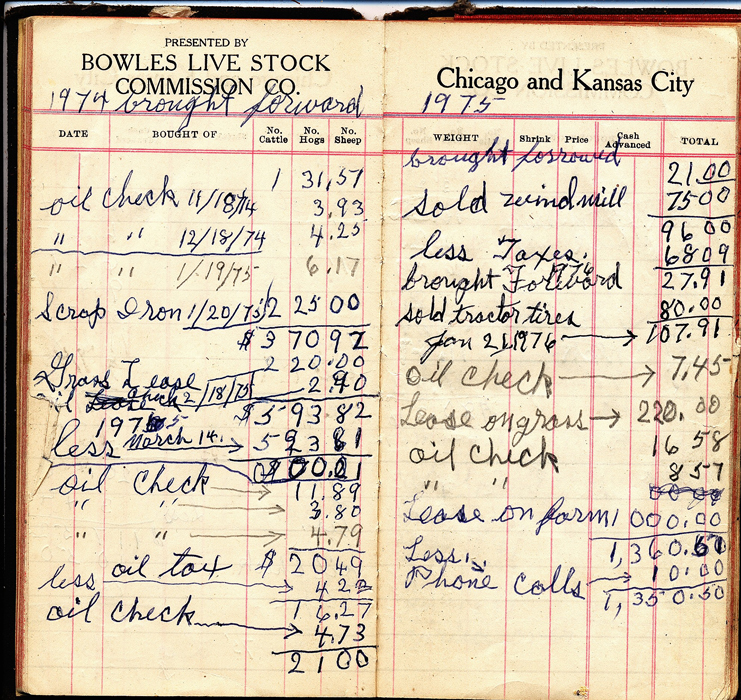 PRESENTED BY
BOWLES LIVE STOCK
COMMISSION CO.
1974 brought forward
DATE BOUGHT OF No. Cattle No. Hogs No. Sheep
1 31,57
oil check 11/18/74 3.93
" " 12/18/74 4.25
" " 1/19/75 6.17
Scrap Iron 1/20/75 2 25 00
$ 3 70 92
Grass Lease 2 20.00
oil check 2/18/75 2.90
1975 $ 5 93 82
less March 14. 5 93 81
00.01
oil check 11.89
" " 3.80
" " 4.79
oil tax $ 20 49
less 4 22
16.27
oil check 4.73
21 00
Chicago and Kansas City
1975
WEIGHT Shrink Price Cash Advanced TOTAL
brought forrowd
21.00
sold windmill 75 00
96 00
less Taxes. 68 09
brought Forward 1976 27.91
sold tractor tires 80.00
Jan 21, 1976 107.91
oil check 7.45
Lease on grass 220.00
oil check 16 58
" " 8 57
Lease on farm 1 000.00
1,360.51
Less,
Phone calls 10.00
1,350.50